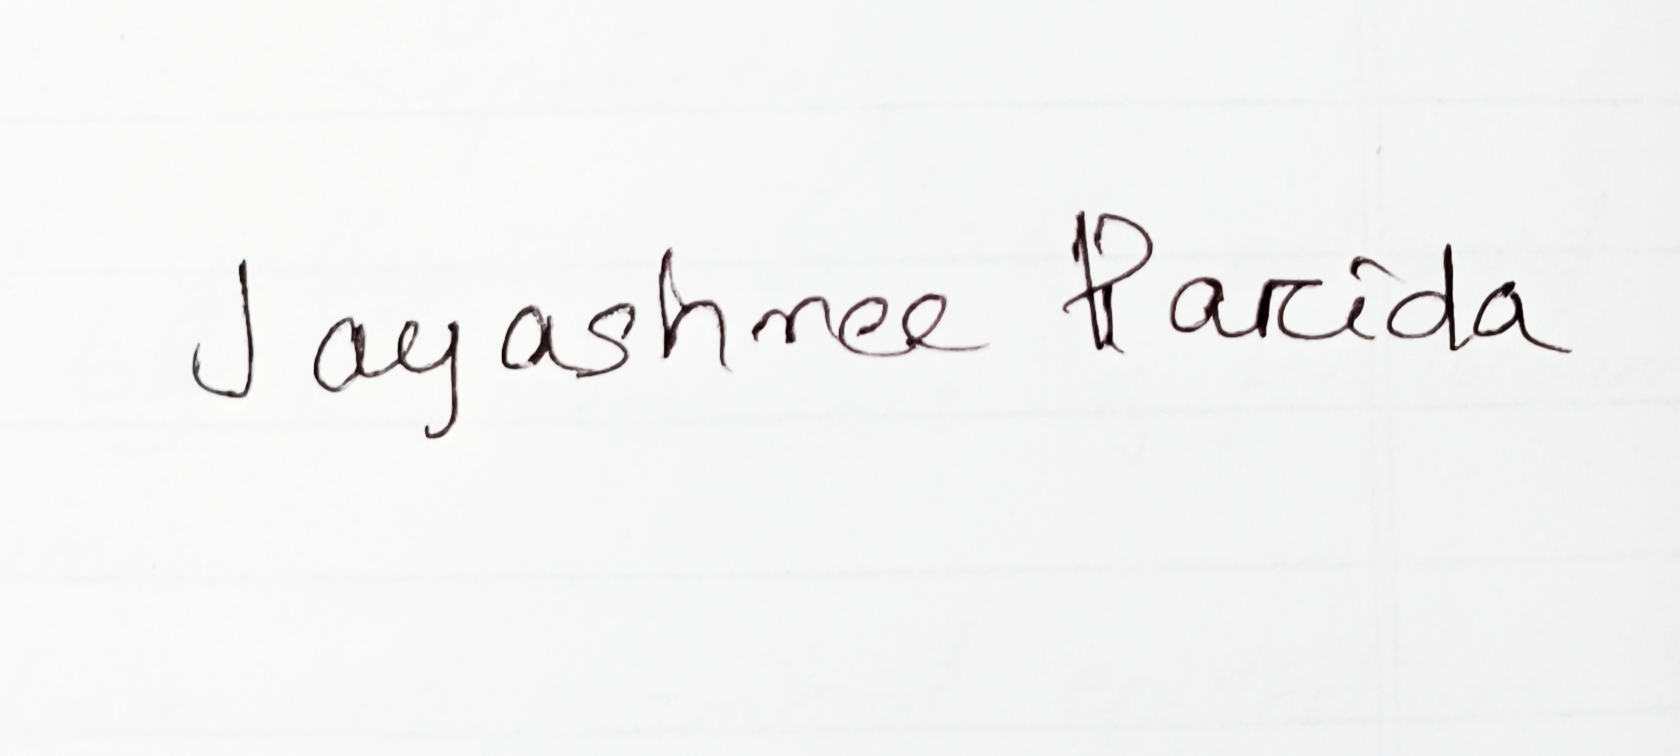 Jayashree Parida